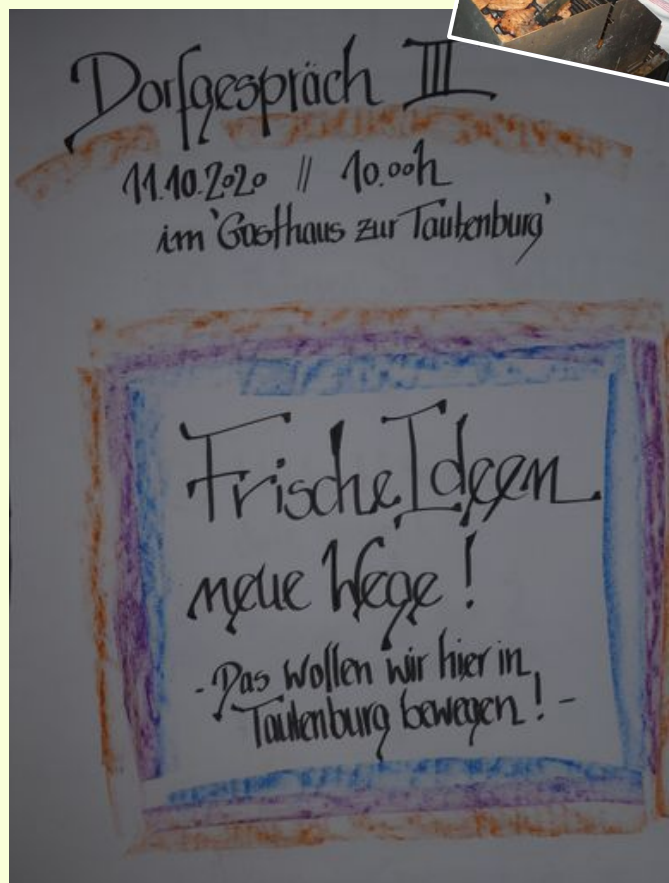 Dorfgespräch III
11.10.2020 // 10.00h
im 'Gasthaus zur Tautenburg'
Frische Ideen
neue Wege!
- Das wollen wir hier in
Tautenburg bewegen! -